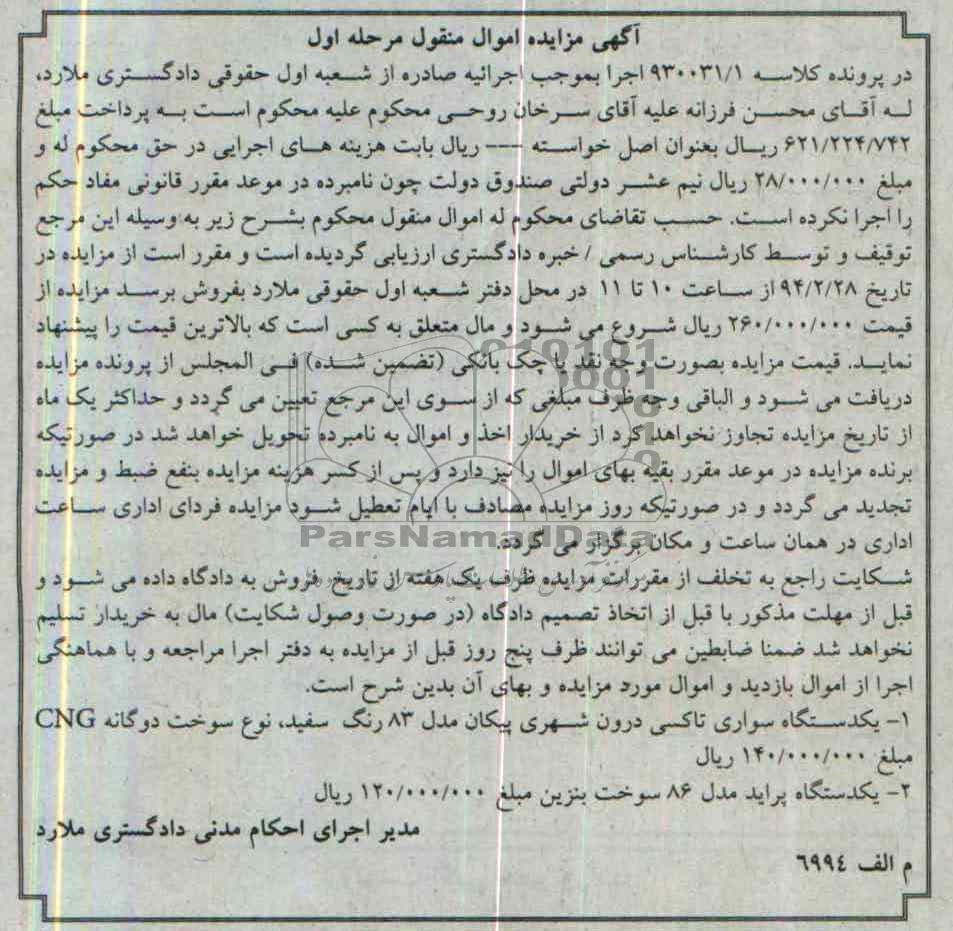 آگهی مزایده اموال منقول مرحله اول
در پرونده کلاسه ۹۳۰۰۳۱/۱ اجرا بموجب اجرائیه صادره از شعبه اول حقوقی دادگستری ملارد،
له آقای محسن فرزانه علیه آقای سرخان روحی محکوم علیه محکوم است به پرداخت مبلغ
۶۲۱/۲۲۴/۷۴۲ ریال بعنوان اصل خواسته --- ریال بابت هزینه های اجرایی در حق محکوم له و
مبلغ ۲۸/۰۰۰/۰۰۰ ریال نیم عشر دولتی صندوق دولت چون نامبرده در موعد مقرر قانونی مفاد حکم
را اجرا نکرده است. حسب تقاضای محکوم له اموال منقول محکوم بشرح زیر به وسیله این مرجع
توقیف و توسط کارشناس رسمی / خبره دادگستری ارزیابی گردیده است و مقرر است از مزایده در
تاریخ ۹۴/۲/۲۸ از ساعت ۱۰ تا ۱۱ در محل دفتر شعبه اول حقوقی ملارد بفروش برسد مزایده از
قیمت ۲۶۰/۰۰۰/۰۰۰ ریال شروع می شود و مال متعلق به کسی است که بالاترین قیمت را پیشنهاد
نماید. قیمت مزایده بصورت وجه نقد یا چک بانکی (تضمین شده) فی المجلس از پرونده مزایده
دریافت می شود و الباقی وجه ظرف مبلغی که از سوی این مرجع تعیین می گردد و حداکثر یک ماه
از تاریخ مزایده تجاوز نخواهد کرد از خریدار اخذ و اموال به نامبرده تحویل خواهد شد در صورتیکه
برنده مزایده در موعد مقرر بقیه بهای اموال را نیز دارد و پس از کسر هزینه مزایده بنفع ضبط و مزایده
تجدید می گردد و در صورتیکه روز مزایده مصادف با ایام تعطیل شود مزایده فردای اداری ساعت
اداری در همان ساعت و مکان برگزار می گردد.
ParsNamadData
شکایت راجع به تخلف از مقررات مزایده ظرف یک هفته از تاریخ فروش به دادگاه داده می شود و
قبل از مهلت مذکور با قبل از اتخاذ تصمیم دادگاه (در صورت وصول شکایت) مال به خریدار تسلیم
نخواهد شد ضمنا ضابطین می توانند ظرف پنج روز قبل از مزایده به دفتر اجرا مراجعه و با هماهنگی
اجرا از اموال بازدید و اموال مورد مزایده و بهای آن بدین شرح است.
۱- یکدستگاه سواری تاکسی درون شهری پیکان مدل ۸۳ رنگ سفید، نوع سوخت دوگانه CNG
مبلغ ۱۴۰/۰۰۰/۰۰۰ ریال
۲- یکدستگاه پراید مدل ۸۶ سوخت بنزین مبلغ ۱۲۰/۰۰۰/۰۰۰ ریال
مدیر اجرای احکام مدنی دادگستری ملارد
م الف ٦٩٩٤